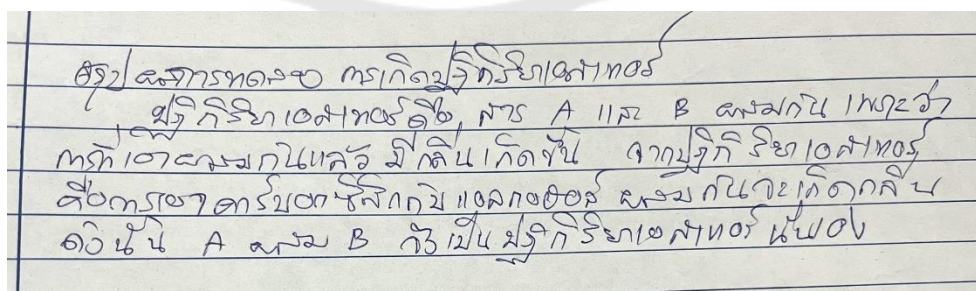 สรุป ผลการทดลอง การเกิดปฏิกิริยาเอสเทอร์
ปฏิกิริยาเอสเทอร์คือ สาร A และ B ผสมกัน เพราะว่า
การที่เอาผสมกันแล้ว มีกลิ่นเกิดขึ้น จากปฏิกิริยาเอสเทอร์
คือการเอาคาร์บอกซิลิกกับแอลกอฮอล์ ผสมกันจะเกิดกลิ่น
ดังนั้น A ผสม B จึงเป็นปฏิกิริยาเอสเทอร์นั่นเอง